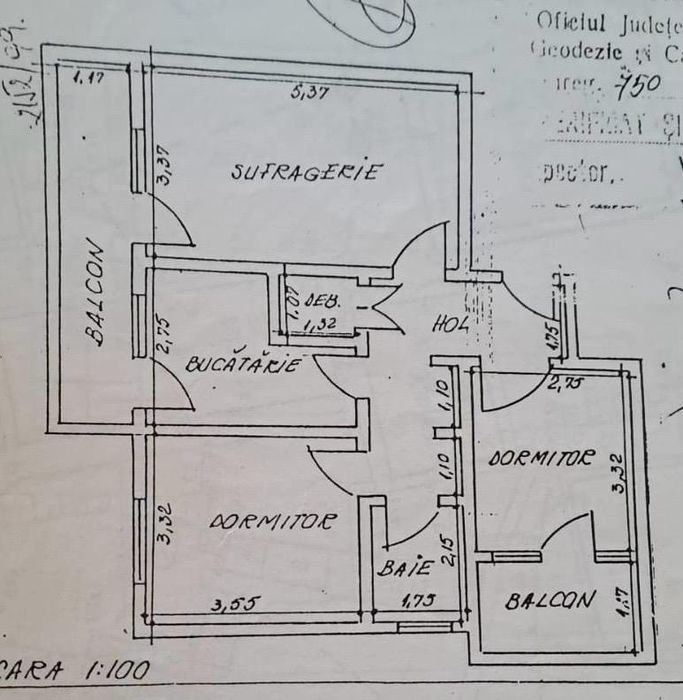 Oficiul Județe
Geodezie și Ca
750
VERIFICAT ȘI
pector,
1,17
5,37
3,37
SUFRAGERIE
BALCON
1,07
DEB.
1,32
HOL
1,75
2,75
BUCĂTĂRIE
2,75
1,10
1,10
DORMITOR
3,32
3,32
DORMITOR
BAIE
2,15
BALCON
1,17
3,55
1,75
CARA 1:100